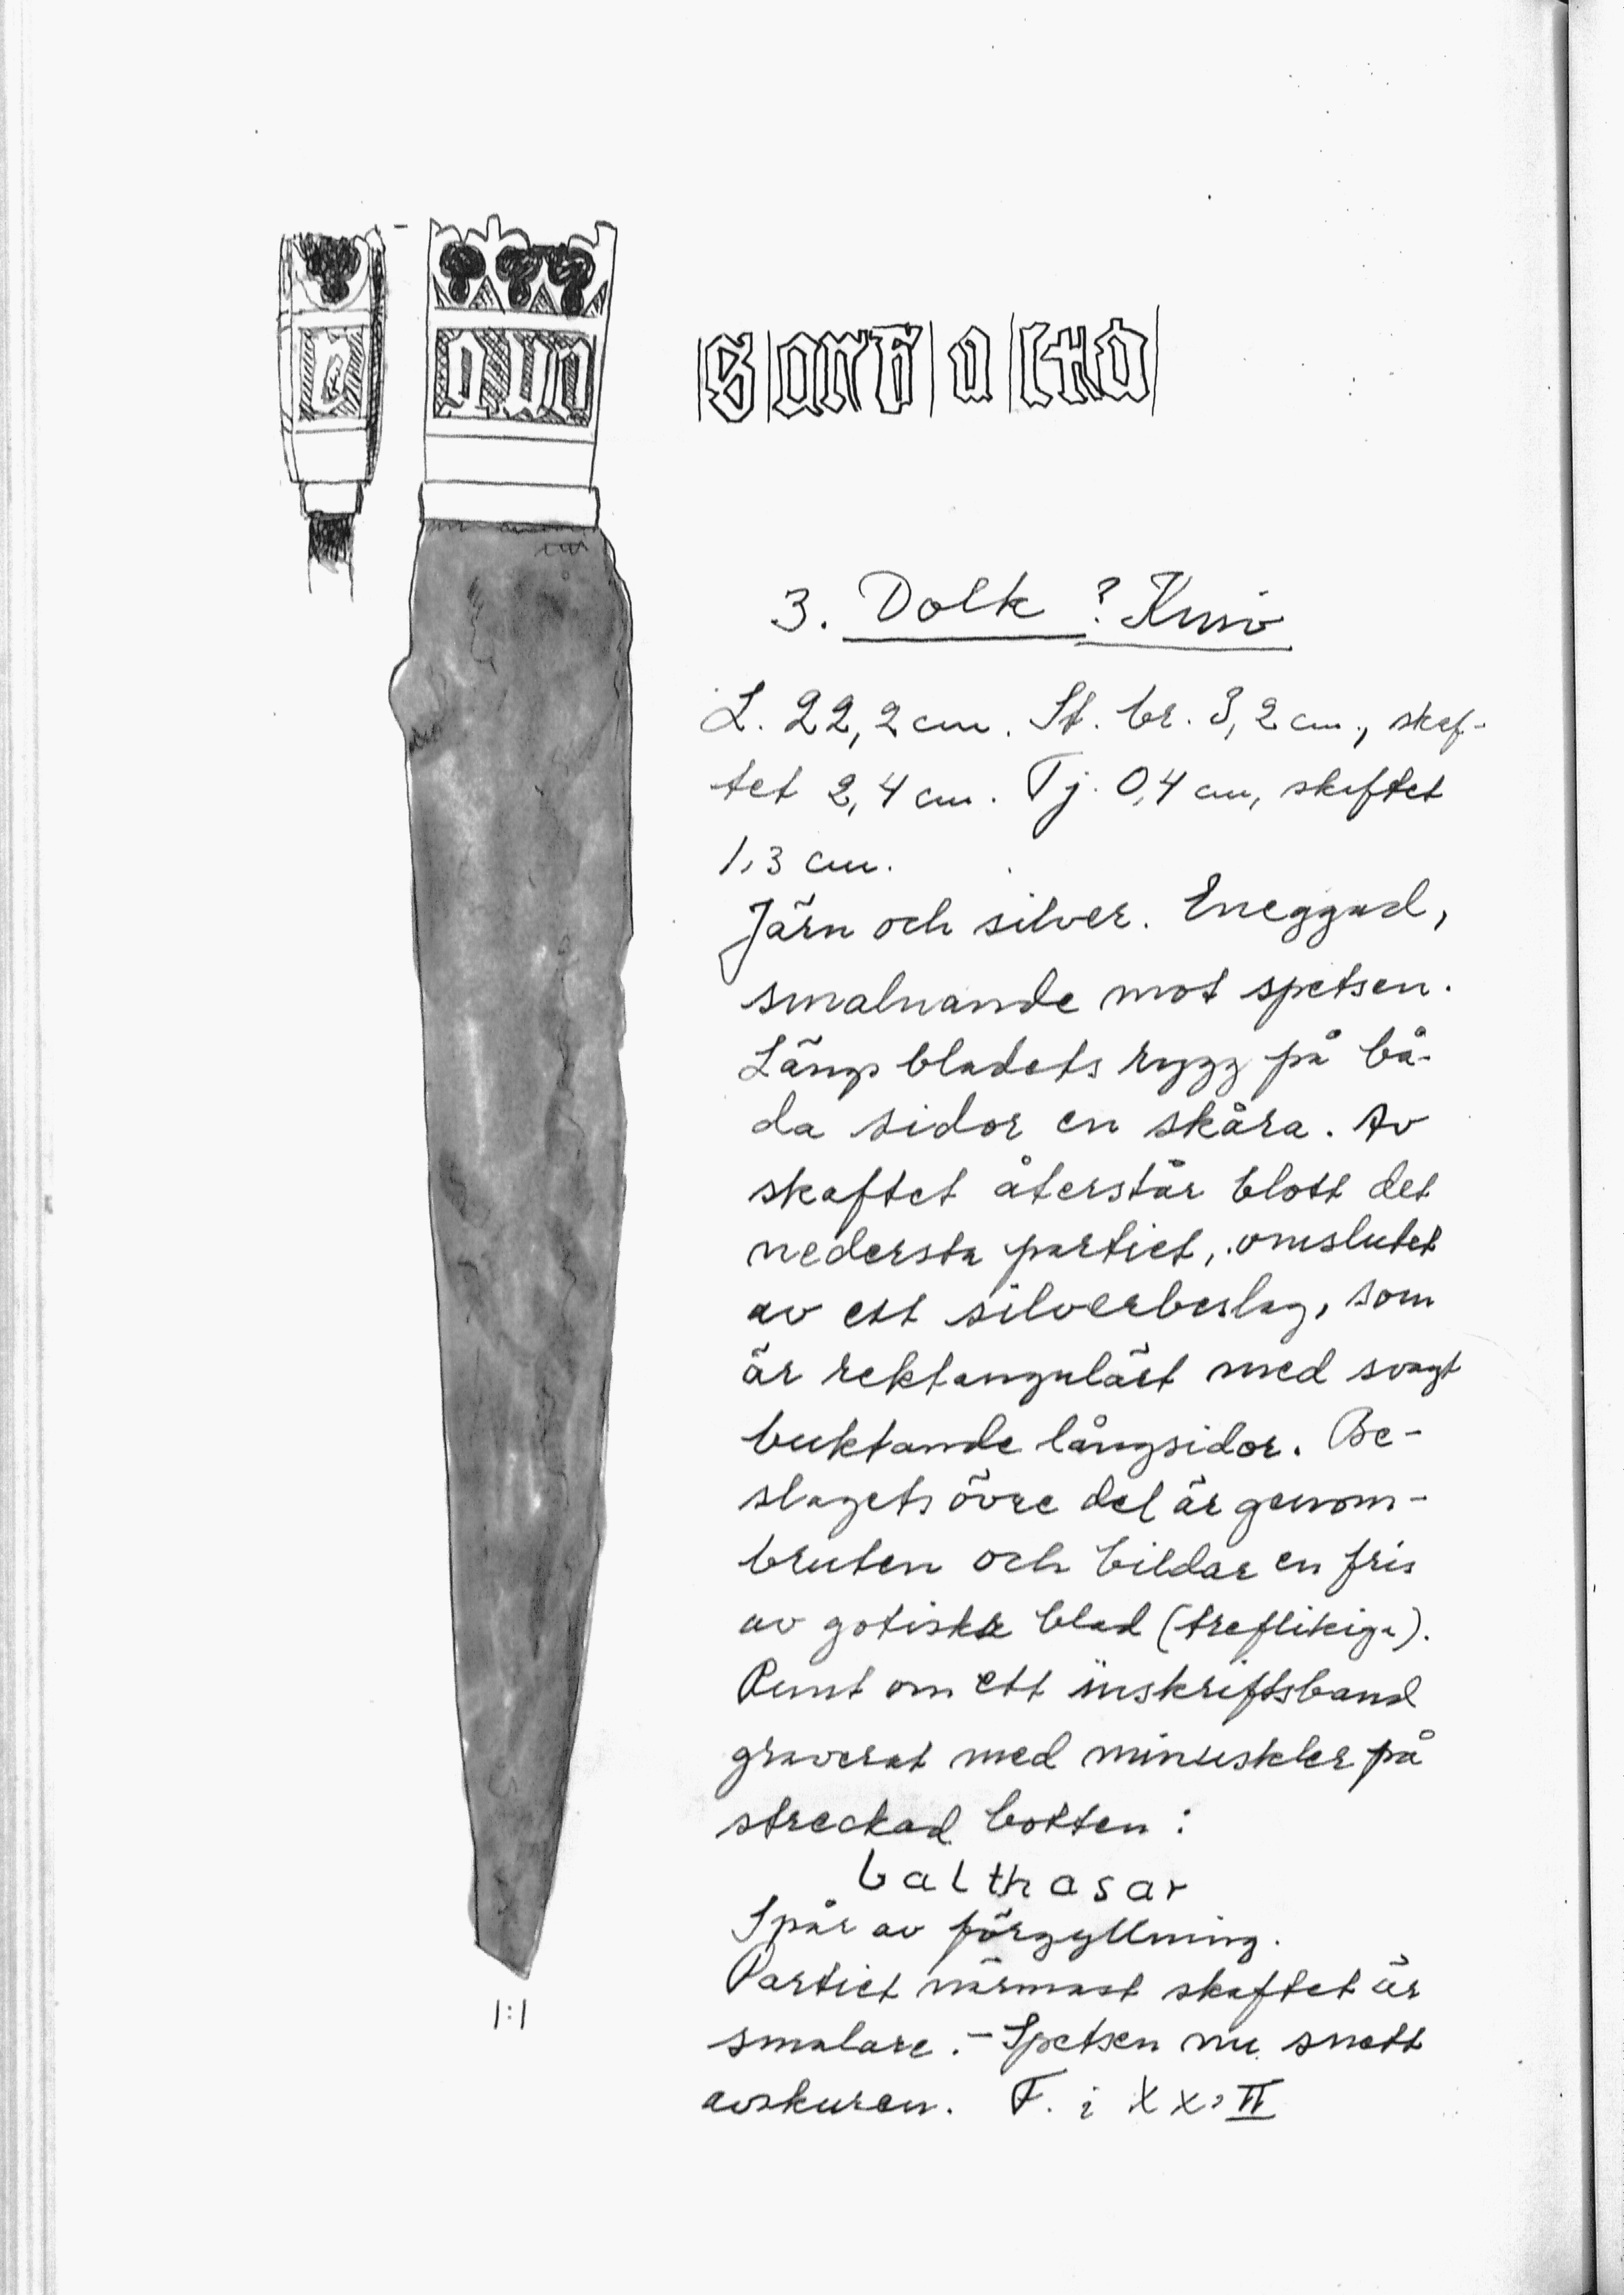 sarb a ltha
3. Dolk ? Kniv
L. 22,2 cm. St. br. 3,2 cm., skaf-
tet 2,4 cm. Tj. 0,4 cm, skaftet
1,3 cm.
Järn och silver. Eneggad,
smalnande mot spetsen.
Längs bladets rygg på bå-
da sidor en skåra. Av
skaftet återstår blott det
nedersta partiet, omslutet
av ett silverbeslag, som
är rektangulärt med svagt
buktande långsidor. Be-
slagets övre del är genom-
bruten och bildar en fris
av gotiska blad (treflikiga).
Runt om ett inskriftsband
graverat med minuskler på
streckad botten:
balthasar
Spår av förgyllning.
Partiet närmast skaftet är
smalare. - Spetsen nu snett
avskuren. F. i XX:II
1:1